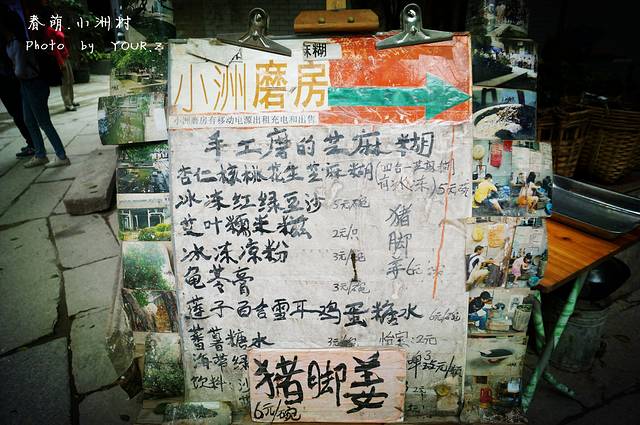 春萌.小洲村
Photo by YOUR.z
麻糊
小洲磨房
小洲磨房有移动电源出租充电和出售
手工磨的芝麻糊
杏仁核桃花生芝麻糊 5元/碗
冰冻红绿豆沙 5元/碗
艾叶糯米糍 2元/只
冰冻凉粉 3元/碗
龟苓膏 3元/碗
猪脚姜6元
莲子百合雪耳鸡蛋糖水 6元/碗
蕃薯糖水 3元/碗 怡宝:2元
海带绿
饮料:
猪脚姜
6元/碗